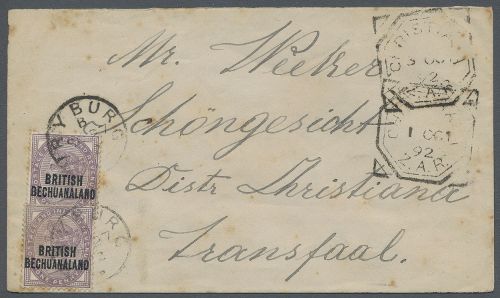 Mr. Weeber
Schöngesicht
Distr Christiana
Transfaal.
VRYBURG
BRITISH
BECHUANALAND
BRITISH
BECHUANALAND
CHRISTIANA
OCT
92
Z.A.R.
1 OCT
92
Z.A.R.